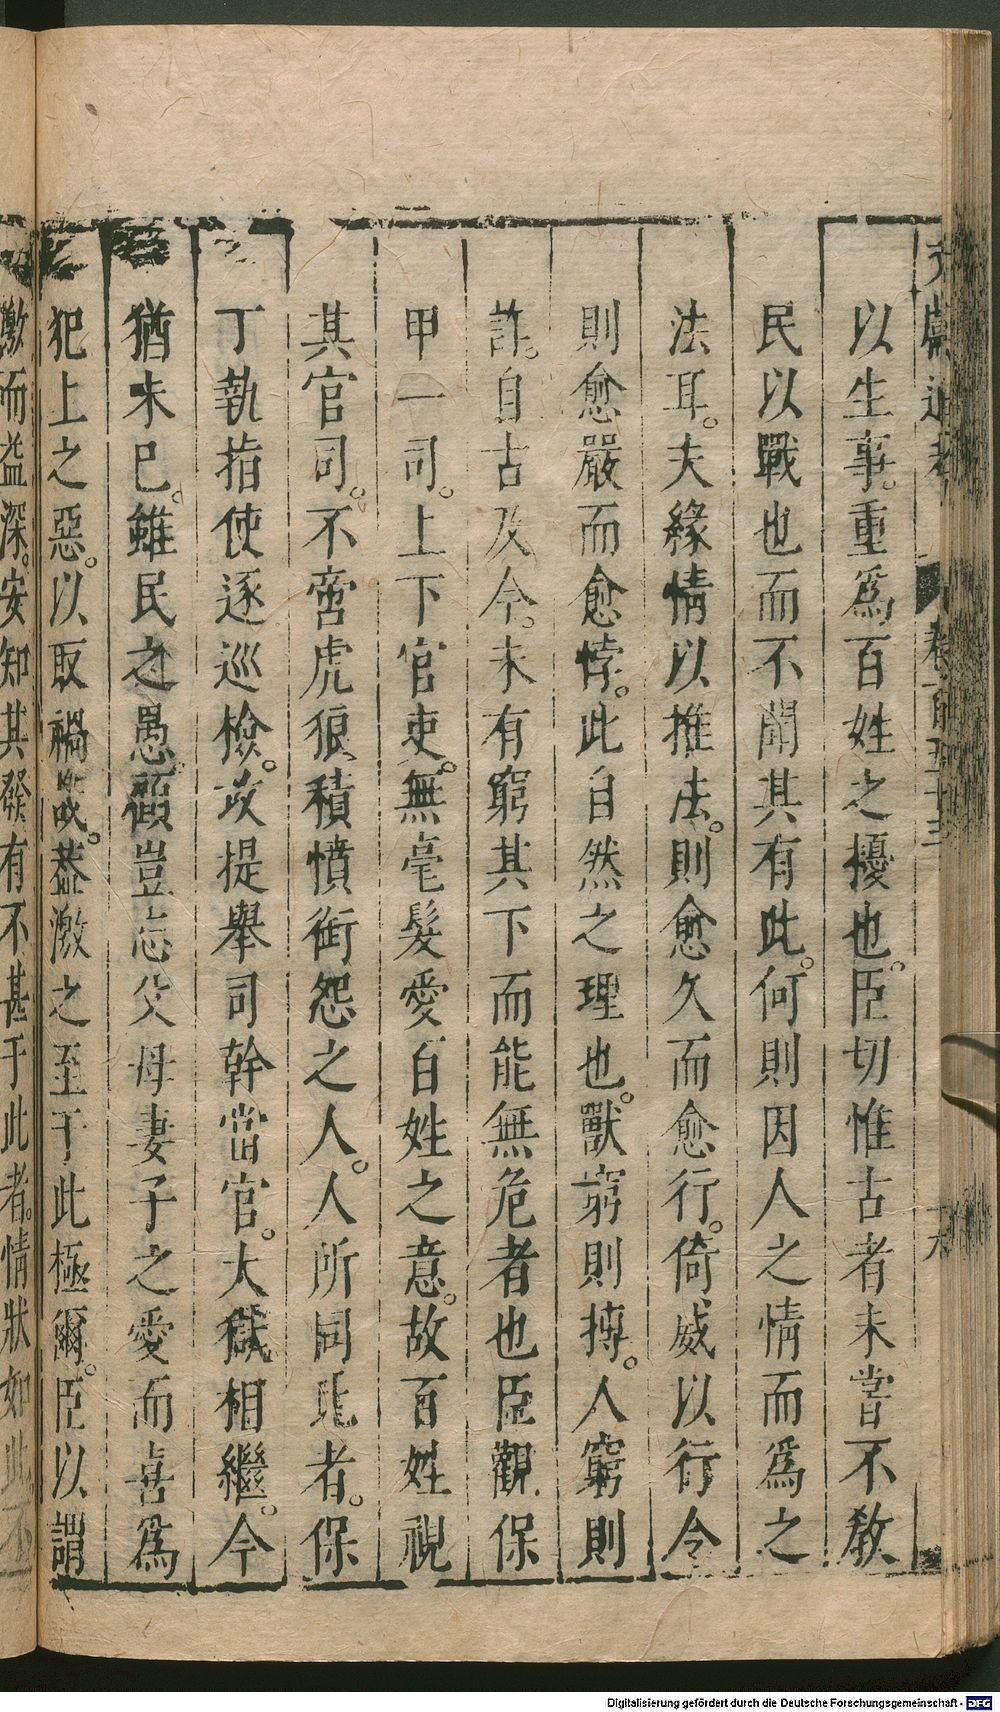 文獻通考 卷一百五十三
以生事。重爲百姓之擾也。臣切惟古者未嘗不教
民以戰也而不聞其有此。何則因人之情而爲之
法耳。夫緣情以推法。則愈久而愈行。倚威以行令
則愈嚴而愈悖。此自然之理也。獸窮則搏。人窮則
詐。自古及今。未有窮其下而能無危者也臣觀保
甲一司。上下官吏。無毫髮愛百姓之意。故百姓視
其官司。不啻虎狼積憤銜怨之人。人所同此者。保
丁執指使逐巡檢。攻提舉司幹當官。大獄相繼。今
猶未已。雖民之愚。顧豈忘父母妻子之愛而喜爲
犯上之惡。以取禍哉。葢激之至于此極爾。臣以謂
激而益深。安知其發有不甚于此者。情狀如此不
Digitalisierung gefördert durch die Deutsche Forschungsgemeinschaft - DFG